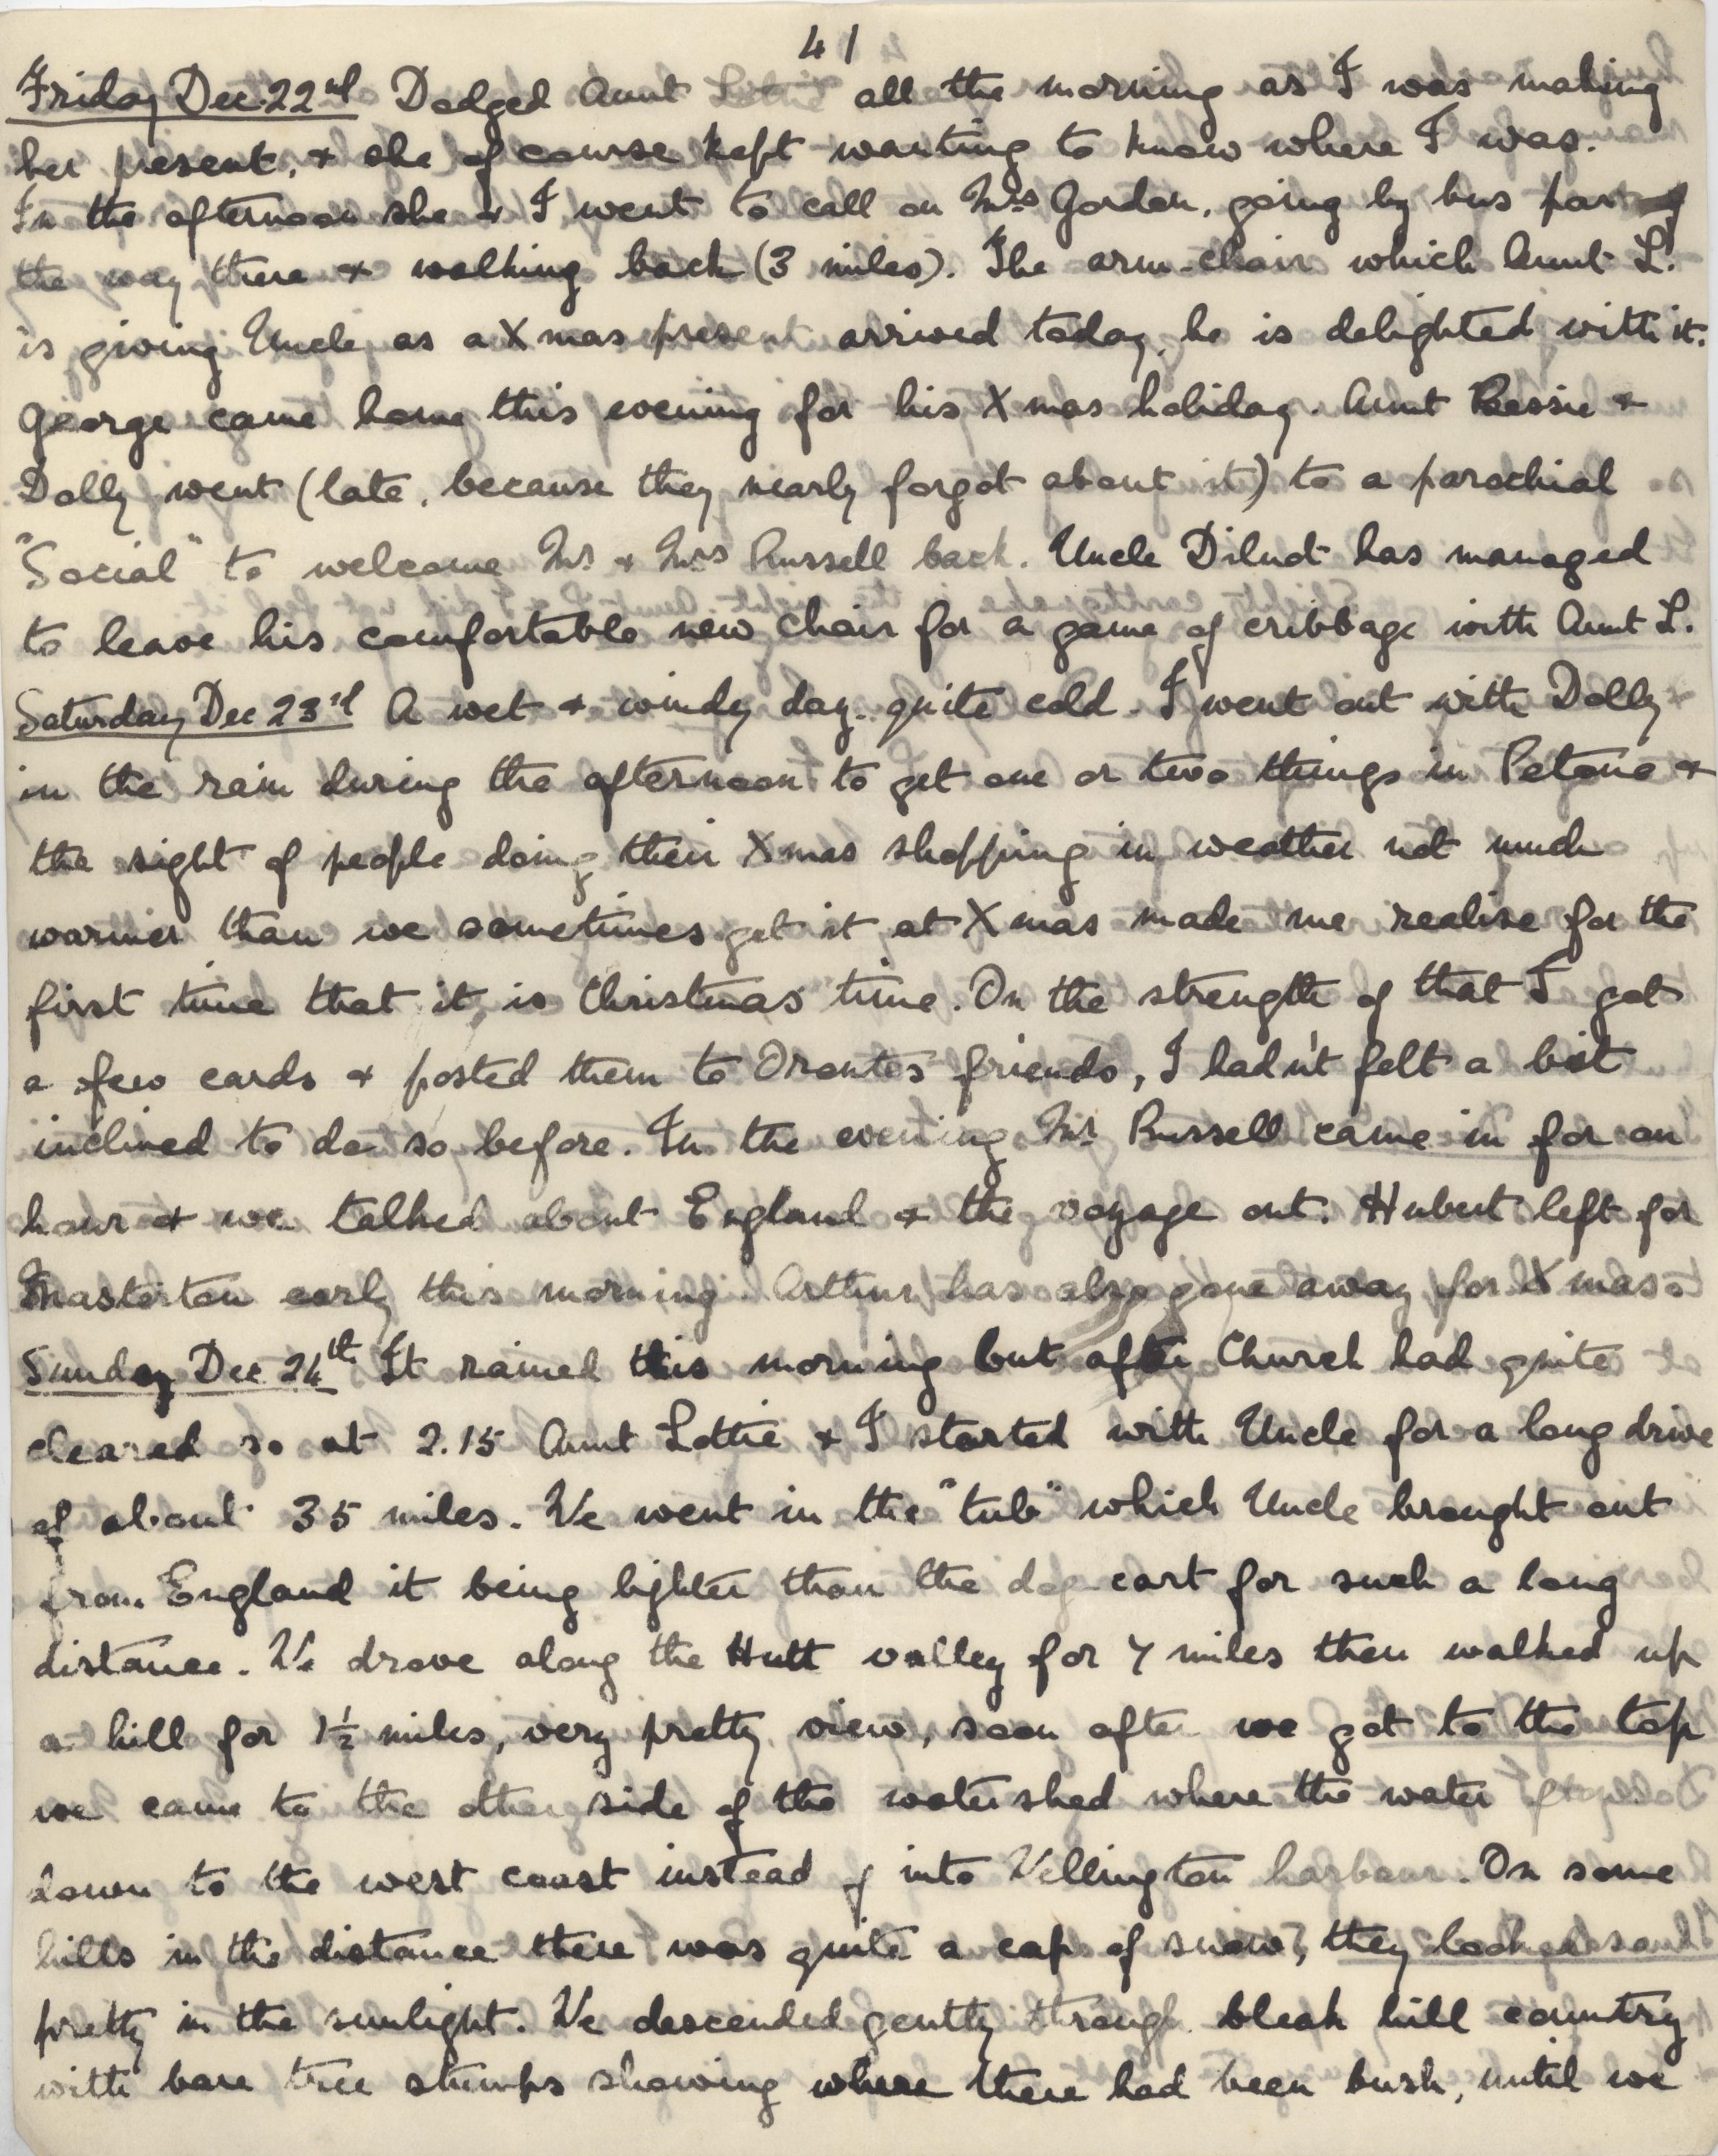 41
Friday Dec. 22nd Dodged Aunt Lottie all the morning as I was making
her present, & she of course kept wanting to know where I was.
In the afternoon she & I went to call on Mrs Gordon, going by bus part of
the way there & walking back (3 miles). The arm-chair which Aunt L.
is giving Uncle as a Xmas present arrived today, he is delighted with it.
George came home this evening for his Xmas holiday. Aunt Bessie &
Dolly went (late, because they nearly forgot about it) to a parochial
"Social" to welcome Mr & Mrs Russell back. Uncle Dilnot has managed
to leave his comfortable new chair for a game of cribbage with Aunt L.
Saturday Dec 23rd A wet & windy day, quite cold. I went out with Dolly
in the rain during the afternoon to get one or two things in Petone &
the sight of people doing their Xmas shopping in weather not much
warmer than we sometimes get it at Xmas made me realise for the
first time that it is Christmas time. On the strength of that I got
a few cards & posted them to Orontes friends, I hadn't felt a bit
inclined to do so before. In the evening Mr Russell came in for an
hour & we talked about England & the voyage out. Hubert left for
Masterton early this morning. Arthur has also gone away for Xmas.
Sunday Dec 24th It rained this morning but after Church had quite
cleared so at 2.15 Aunt Lottie & I started with Uncle for a long drive
of about 35 miles. We went in the "tub" which Uncle brought out
from England it being lighter than the dog cart for such a long
distance. We drove along the Hutt valley for 7 miles then walked up
a hill for 1½ miles, very pretty view, soon after we got to the top
we came to the other side of the watershed where the water
down to the west coast instead of into Wellington harbour. On some
hills in the distance there was quite a cap of snow, they looked so
pretty in the sunlight. We descended gently through bleak hill country
with bare tree stumps showing where there had been bush, until we